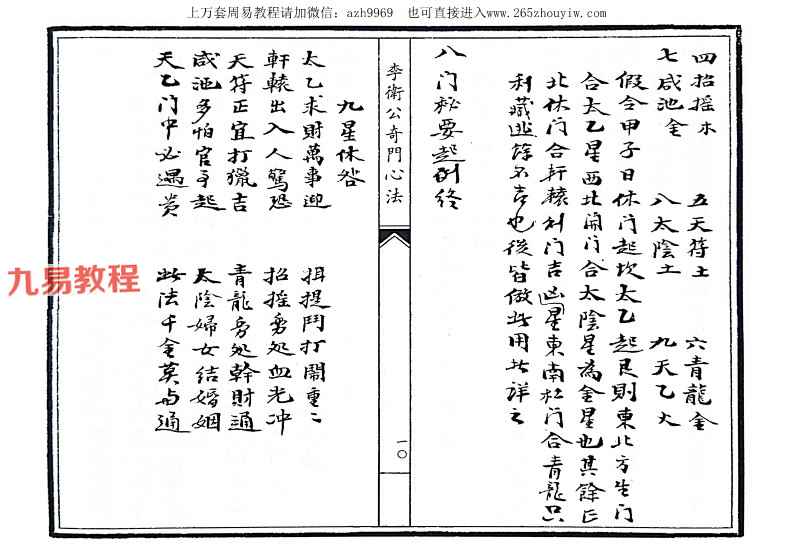 上万套周易教程请加微信：azh9969 也可直接进入www.265zhouyiw.com
四招摇木 五天符土 六青龍金
七咸池金 八太陰土 九天乙火
假合甲子日休门起坎太乙起艮則東北方生门
合太乙星西北開门合太陰星為金星也其餘正
北休门合軒轅列门吉凶星東南杜门合青龍只
利藏逃餘不吉也後皆倣此用者詳之
八门秘要起例终
李衛公奇門心法
一〇
九星休咎
太乙求財萬事迎 揖提鬥打鬧重二
軒轅出入人驚恐 招摇多处血光冲
天符正宜打獵吉 青龍多处幹財通
咸池多怕官事起 太陰婦女結婚姻
天乙门中必遇贵 此法千金莫与通
九易教程